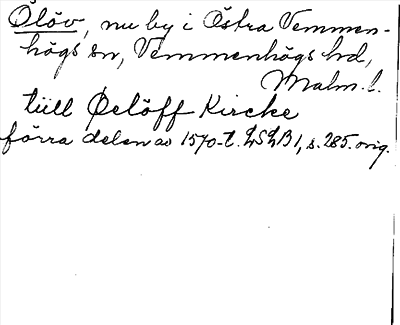 Ölöv, nu by i Östra Vemmen-
högs sn, Vemmenhögs hd,
Malm. l.
tiill Øelöff Kircke
förra delen av 1570-t. LSLB 1, s. 285. orig.